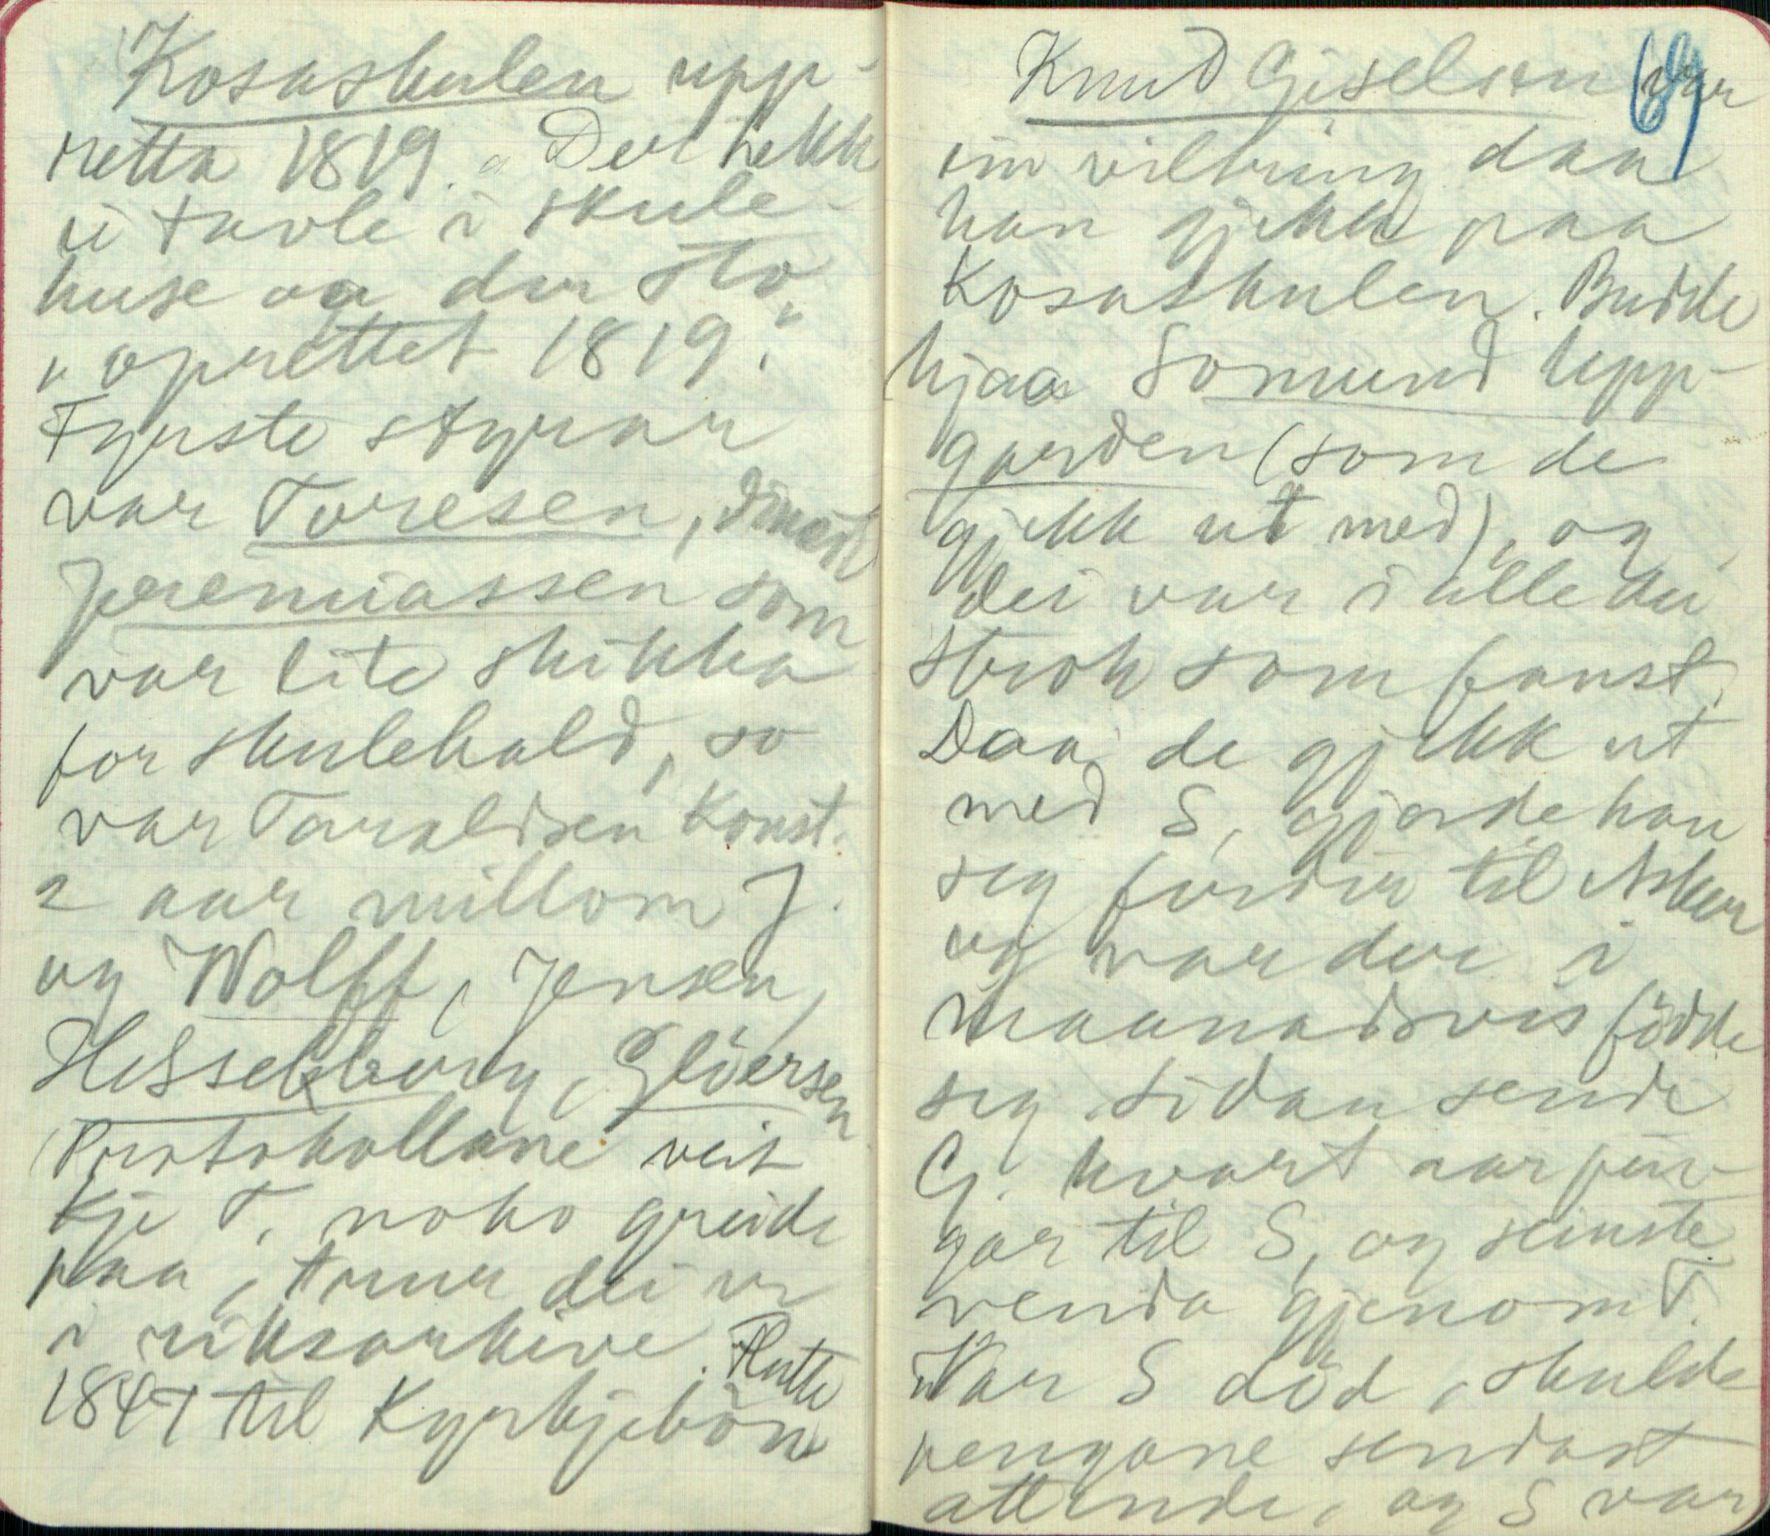 Kosaskulen upp-
retta 1819. "Der hekk
ei tavle i skule-
huse og der sto
"oprettet 1819."
Fyrste styrar
var Toresen, dinæst
Jeremiassen som
var lite skikka
for skulehald, so
var Taraldsen Konst.
2 aar millom J.
og Wolff, Jensen,
Hesselberg, Glöersen
Protokollane veit
kje T. noko greide
paa, trur dei er
i riksarkive. Flutte
1847 til Kyrkjebön
69
Knud Giselsen var
ein vilbring daa
han gjekk paa
Kosaskulen. Budde
hjaa Somund Upp-
garden (som de
gjekk ut med), og
dei var i alle dei
strok som fanst.
Daa de gjekk ut
med S, gjorde han
seg för til Asker
og var der i
maanadsvis födde
seg. Sidan sende
G. kvart aar pen-
gar til S, og seinste
venda gjenom T.
"Var S död, skulde
pengane sendast
attende, og S var